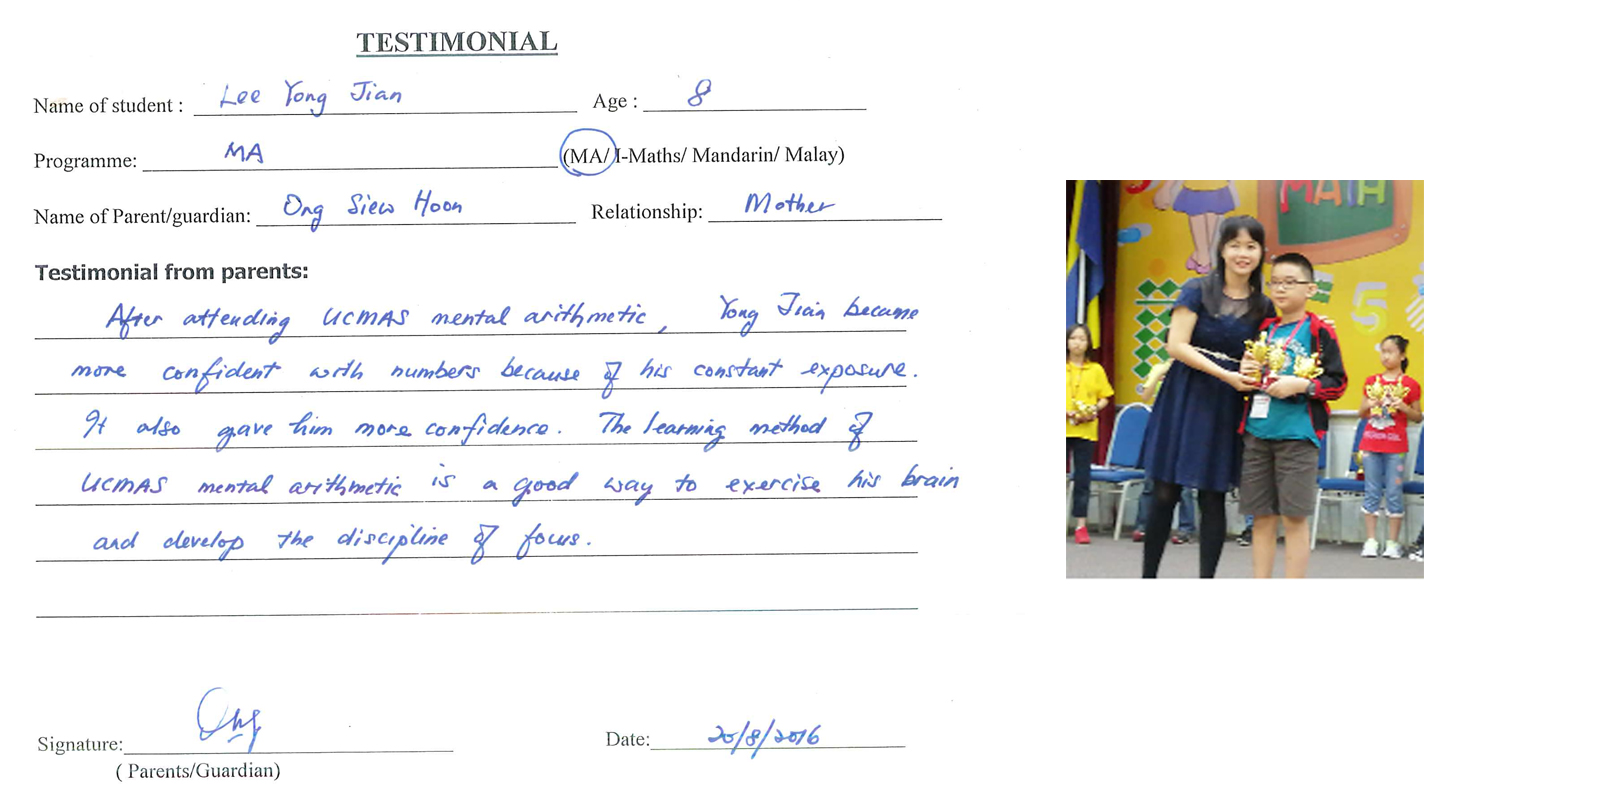 TESTIMONIAL
Name of student : Lee Yong Jian Age : 8
Programme: MA (MA/ I-Maths/ Mandarin/ Malay)
Name of Parent/guardian: Ong Siew Hoon Relationship: Mother
Testimonial from parents:
After attending UCMAS mental arithmetic, Yong Jian became
more confident with numbers because of his constant exposure.
It also gave him more confidence. The learning method of
UCMAS mental arithmetic is a good way to exercise his brain
and develop the discipline of focus.
Signature: Ong Date: 20/8/2016
( Parents/Guardian)
MATH
5